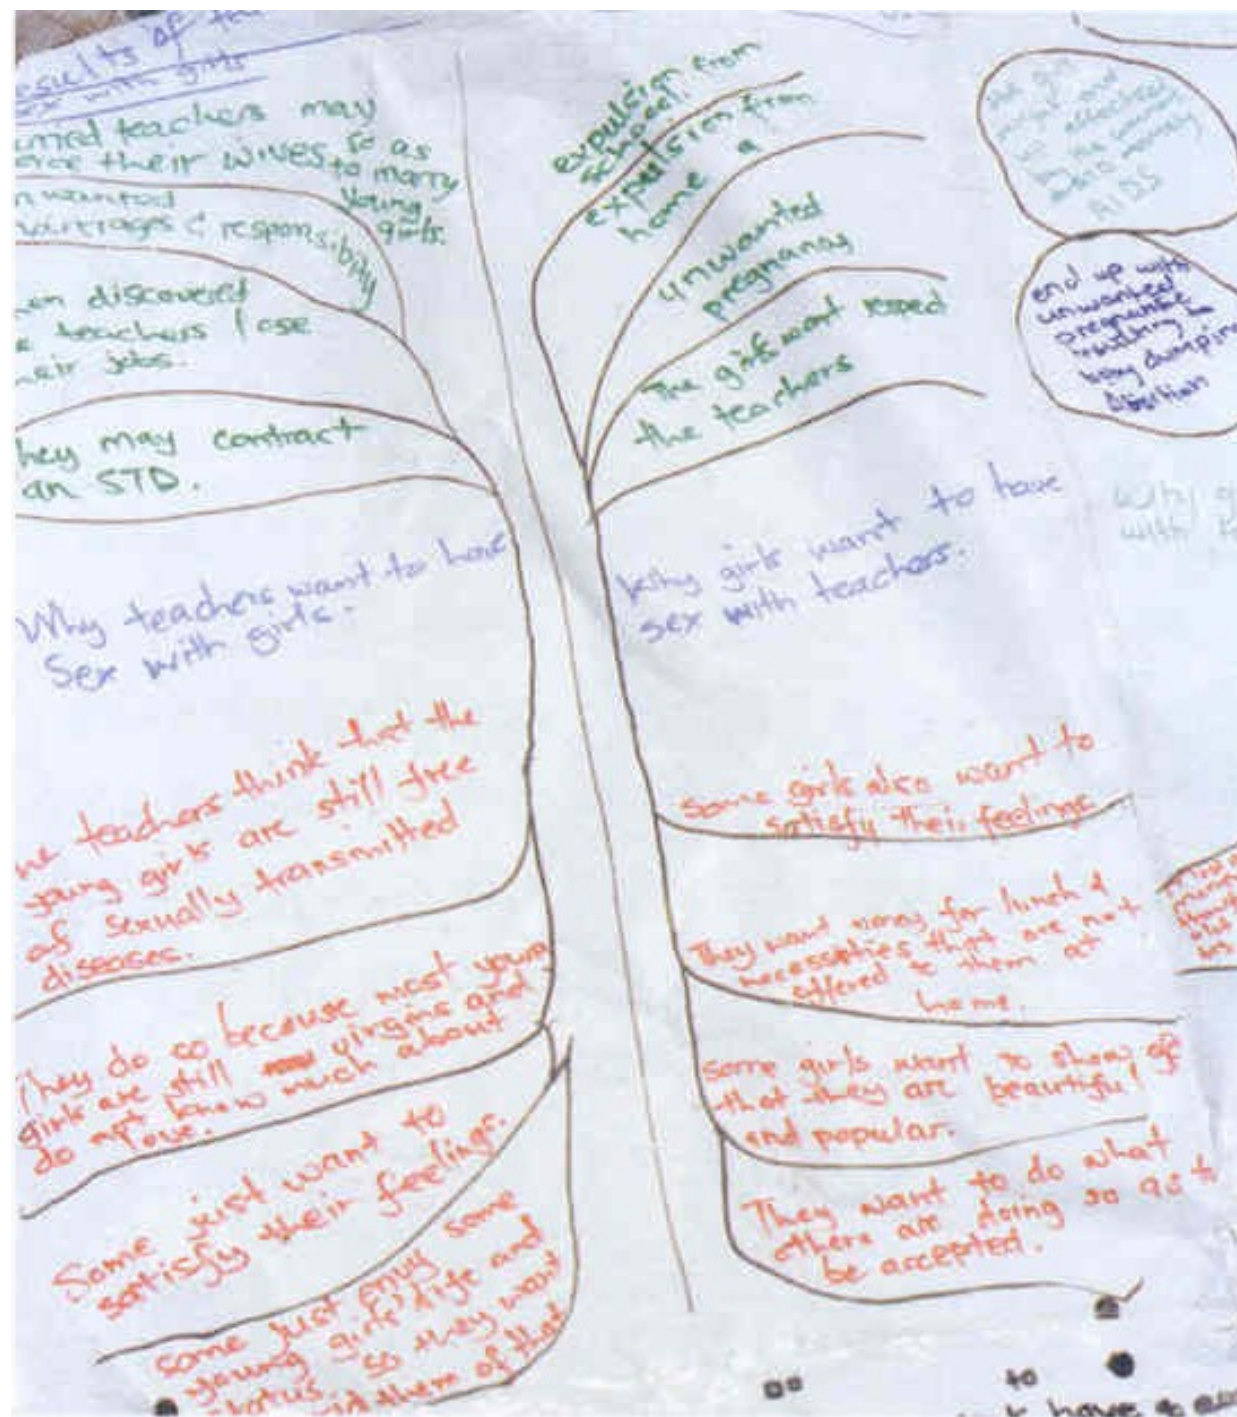 sex with girls
teachers may
their wives so as
to marry
young
girls.
marriages & responsibility
discovered
teachers lose
their jobs.
They may contract
an STD.
Why teachers want to have
Sex with girls.
teachers think that the
young girls are still free
of sexually transmitted
diseases.
They do so because most young
girls are still virgins and
do not know much about
love.
Some just want to
satisfy their feelings.
Some just envy some
young girls' life and
status. so they want
them of that
expulsion from
school.
expulsion from
home
a
unwanted
pregnancy
The girls want respect
the teachers
Why girls want to have
sex with teachers.
Some girls also want to
satisfy their feelings
They want money for lunch &
necessities that are not
offered to them at
home.
some girls want to show of
that they are beautiful
and popular.
They want to do what
others are doing so as to
be accepted.
AIDS
end up with
unwanted
baby dumping
with
to
have a